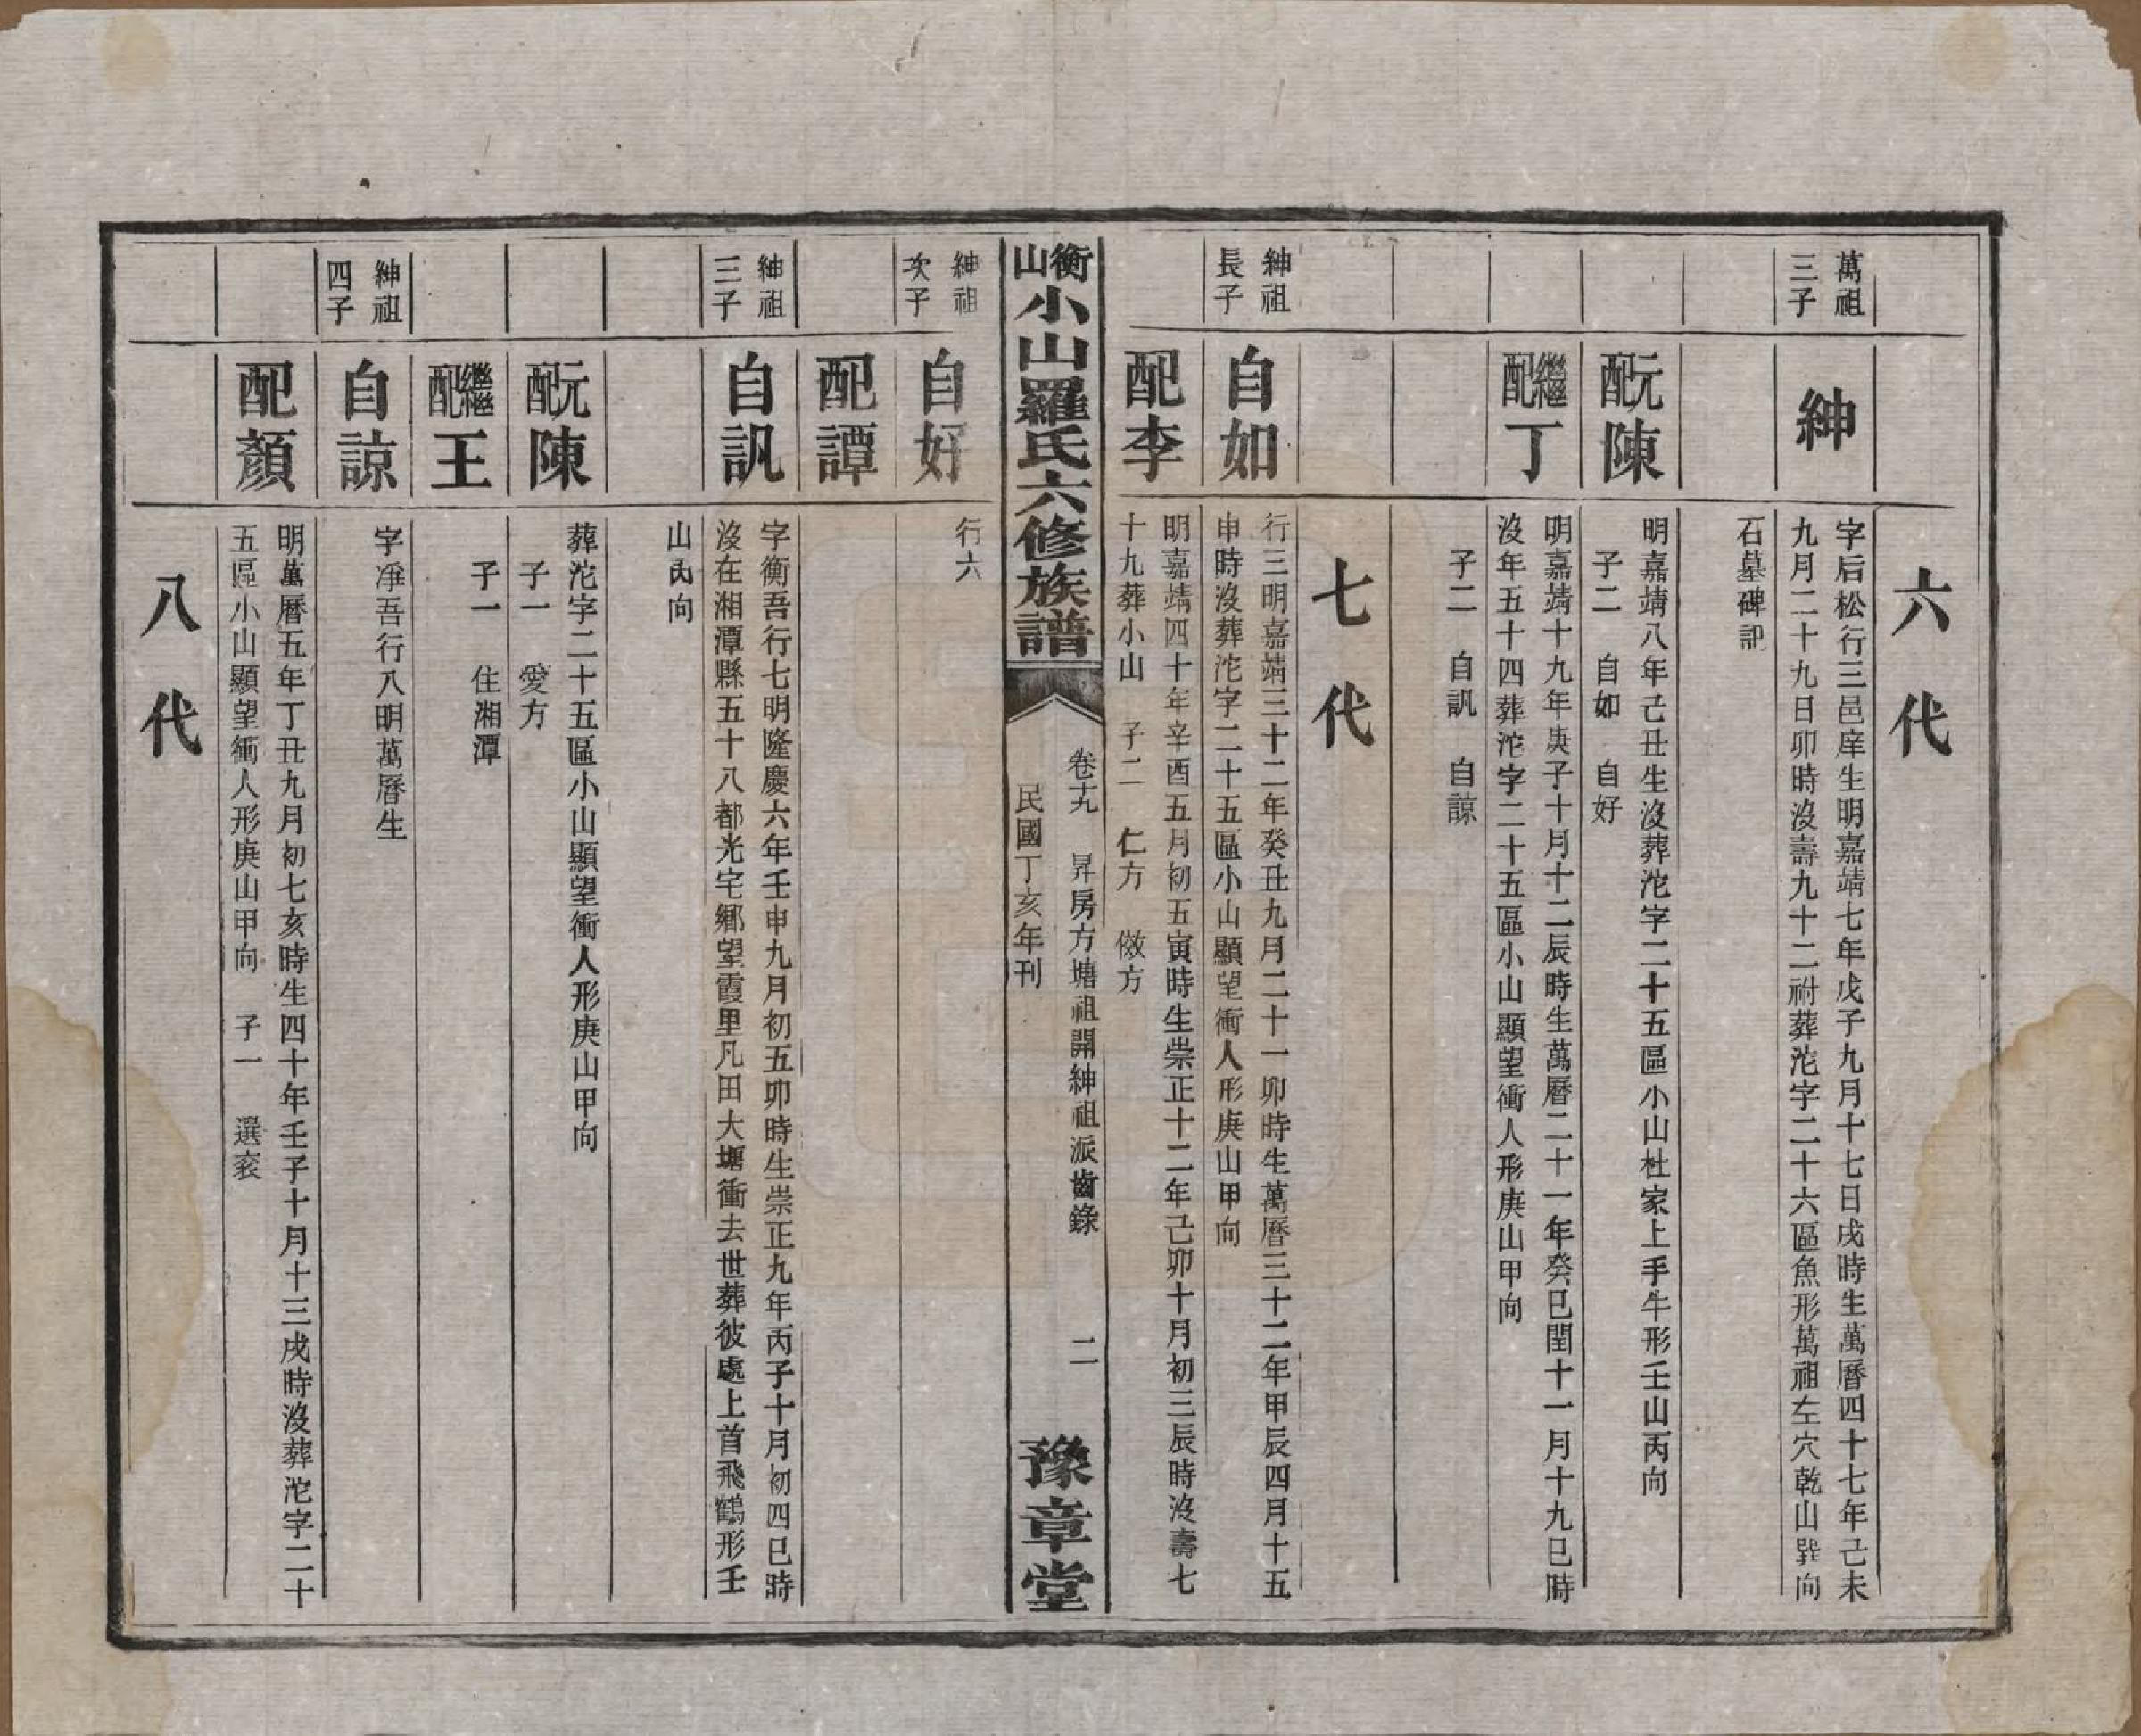 六代
萬祖
三子
紳
字后松行三邑庠生明嘉靖七年戊子九月十七日戌時生萬曆四十七年己未
九月二十九日卯時沒壽九十二祔葬沱字二十六區魚形萬祖左穴乾山巽向
石墓碑記
元配陳
明嘉靖八年己丑生沒葬沱字二十五區小山杜家上手牛形壬山丙向
子二　自如　自好
繼配丁
明嘉靖十九年庚子十月十二辰時生萬曆二十一年癸巳閏十一月十九巳時
沒年五十四葬沱字二十五區小山顯望衝人形庚山甲向
子二　自訊　自諒
七代
紳祖
長子
自如
行三明嘉靖三十二年癸丑九月二十一卯時生萬曆三十二年甲辰四月十五
申時沒葬沱字二十五區小山顯望衝人形庚山甲向
配李
明嘉靖四十年辛酉五月初五寅時生崇正十二年己卯十月初三辰時沒壽七
十九葬小山　子二　仁方　傚方
衡山小山羅氏六修族譜
卷十九　昇房方塘祖開紳祖派齒錄　二
民國丁亥年刊
豫章堂
紳祖
次子
自好
行六
配譚
紳祖
三子
自訊
字衡吾行七明隆慶六年壬申九月初五卯時生崇正九年丙子十月初四巳時
沒在湘潭縣五十八都光宅鄉望霞里凡田大塘衝去世葬彼處上首飛鶴形壬
山丙向
元配陳
葬沱字二十五區小山顯望衝人形庚山甲向
子一　愛方
繼配王
子一　住湘潭
紳祖
四子
自諒
字淨吾行八明萬曆生
配顏
明萬曆五年丁丑九月初七亥時生四十年壬子十月十三戌時沒葬沱字二十
五區小山顯望衝人形庚山甲向　子一　選袞
八代